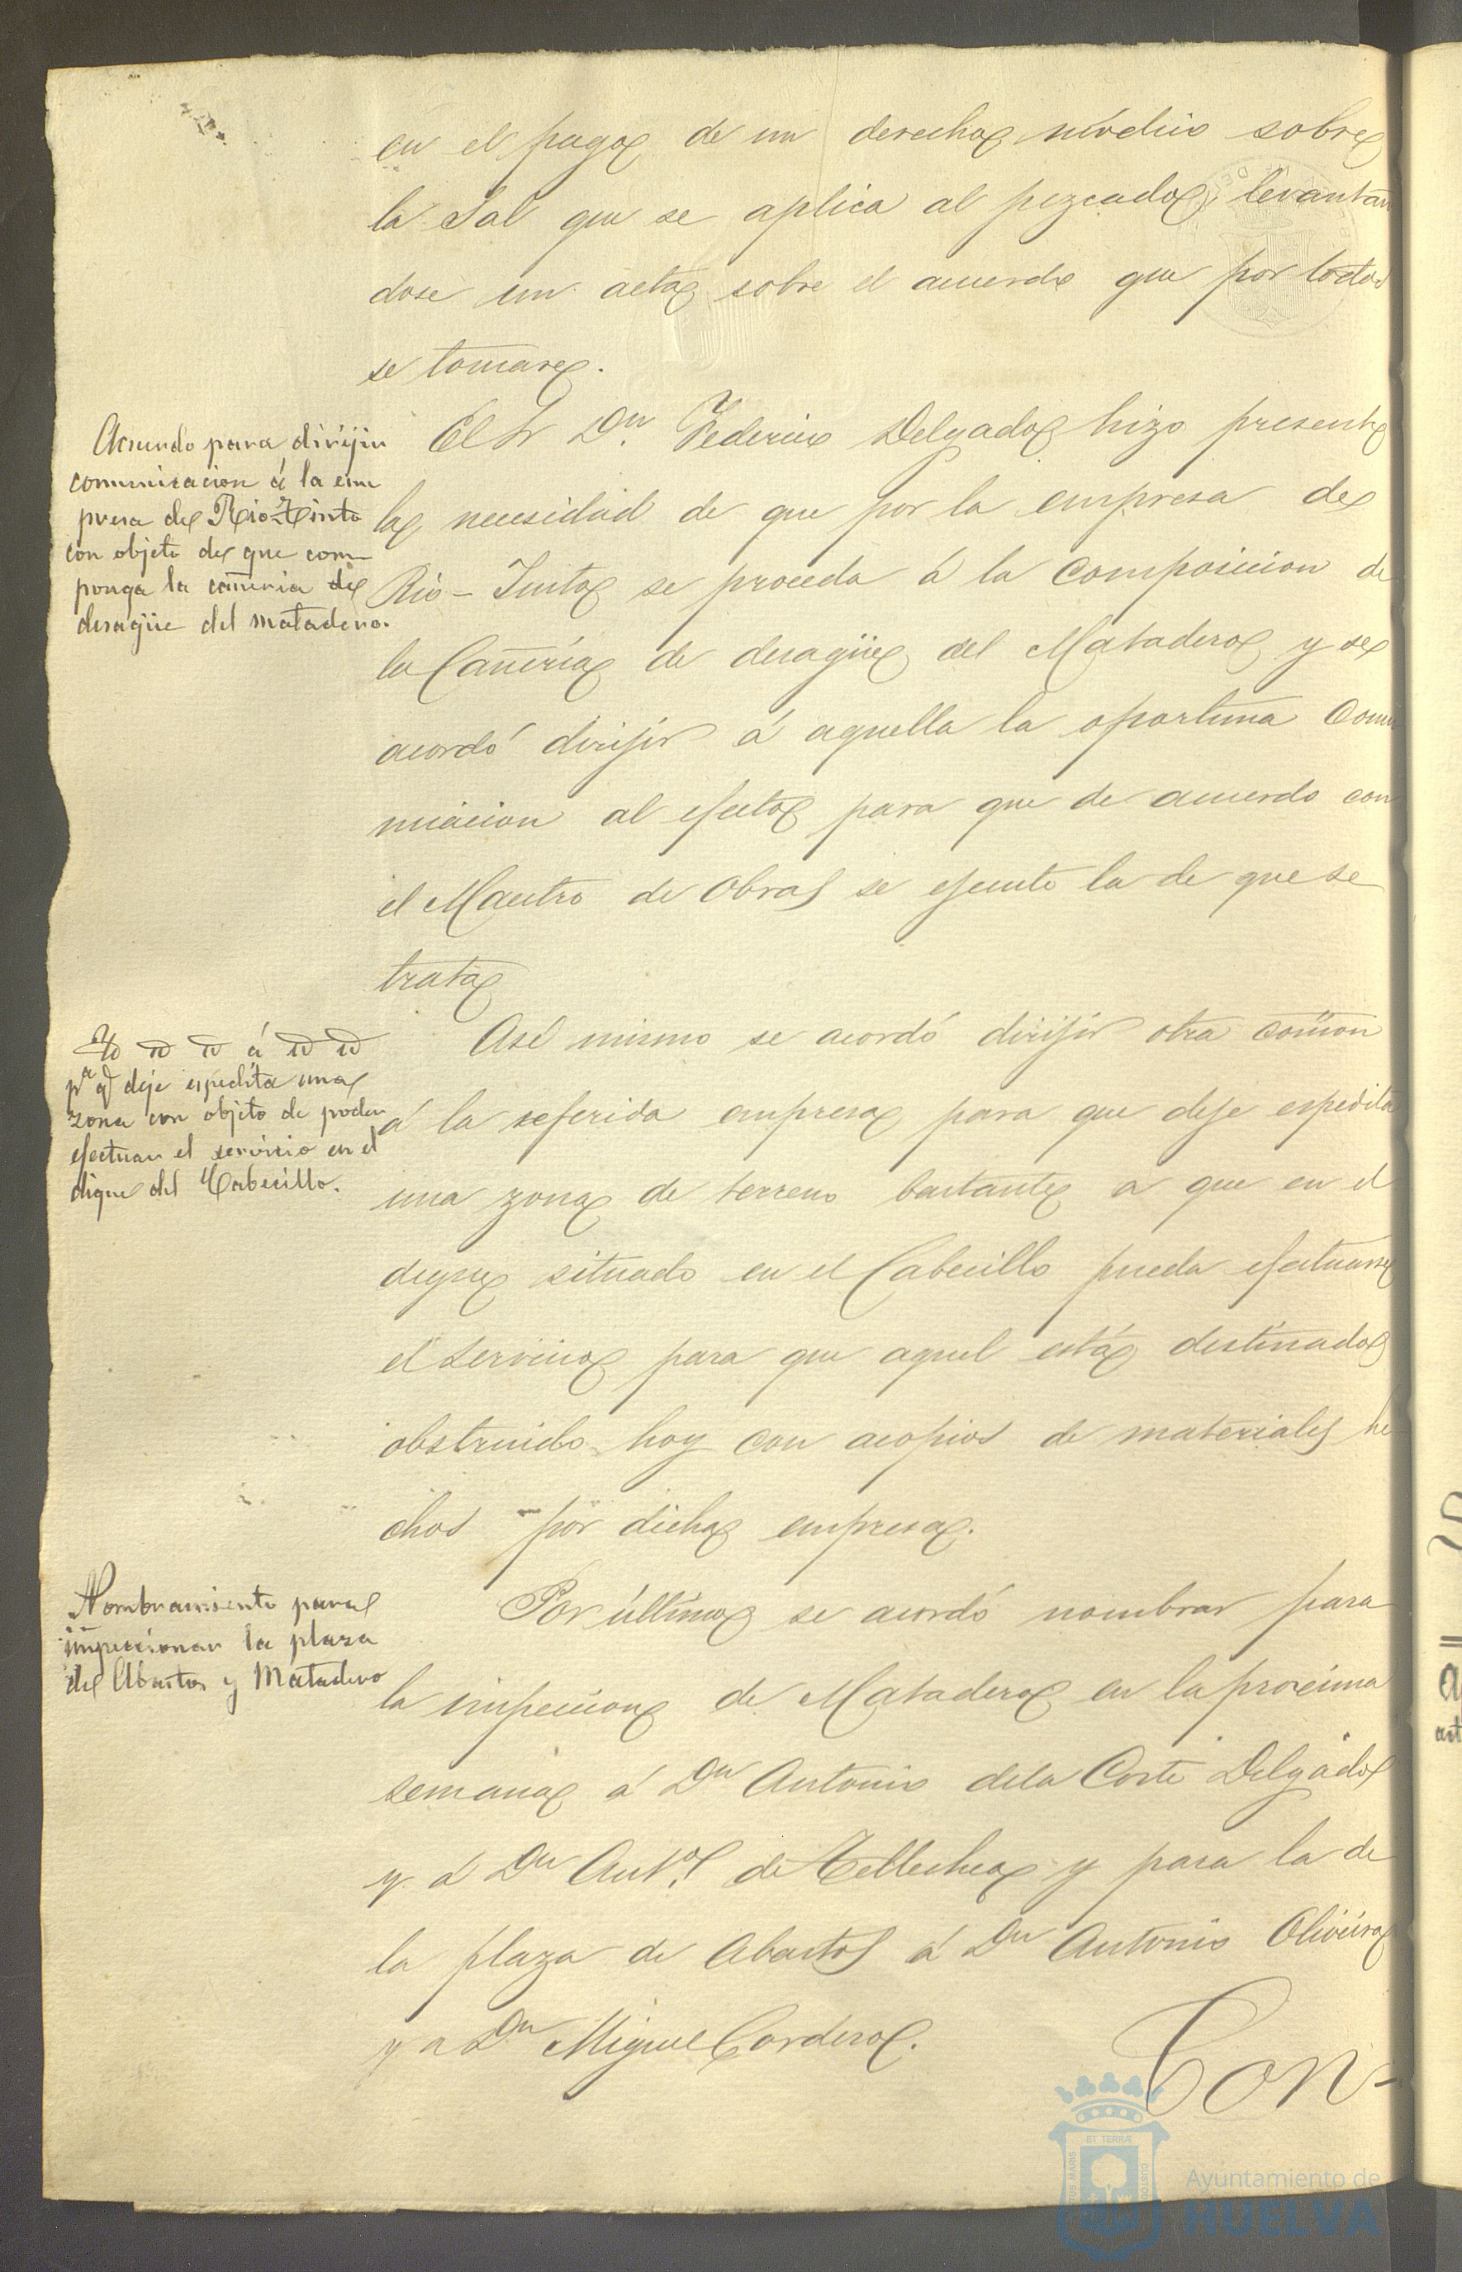 en el pago de un derecho módico sobre
la Sal que se aplica al pezcado, levantan
dose un acta sobre el acuerdo que por todos
se tomare.
Acuerdo para dirijir
comunicacion á la em
presa de Rio-Tinto
con objeto de que com-
ponga la cañeria de
desagüe del matadero.
El Sr Dn. Federico Delgado hizo presente
la necesidad de que por la empresa de
Rio-Tinto se proceda á la composicion de
la Cañería de desagüe del Matadero y se
acordó dirijir á aquella la oportuna Comu
nicacion al efecto para que de acuerdo con
el Maestro de Obras se ejecute la de que se
trata
Yd id id á id id
pa q deje espedita una
zona con objeto de poder
efectuar el servicio en el
dique del Cabecillo.
Asi mismo se acordó dirijir otra comon
á la referida empresa para que deje espedita
una zona de terreno bastante a que en el
dique situado en el Cabecillo pueda efectuarse
el servicio para que aquel está destinado
obstruido hoy con acopios de materiales he
chos por dicha empresa.
Nombramiento para
inspeccionar la plaza
de Abastos y Matadero
Por último se acordó nombrar para
la inspeccion de Matadero en la procsima
semana á Dn Antonio de la Corte Delgado
y á Dn Anto. de Tellechea y para la de
la plaza de Abastos á Dn Antonio Oliveira
y a Dn Miguel Cordero.
Con-
Ayuntamiento de
HUELVA